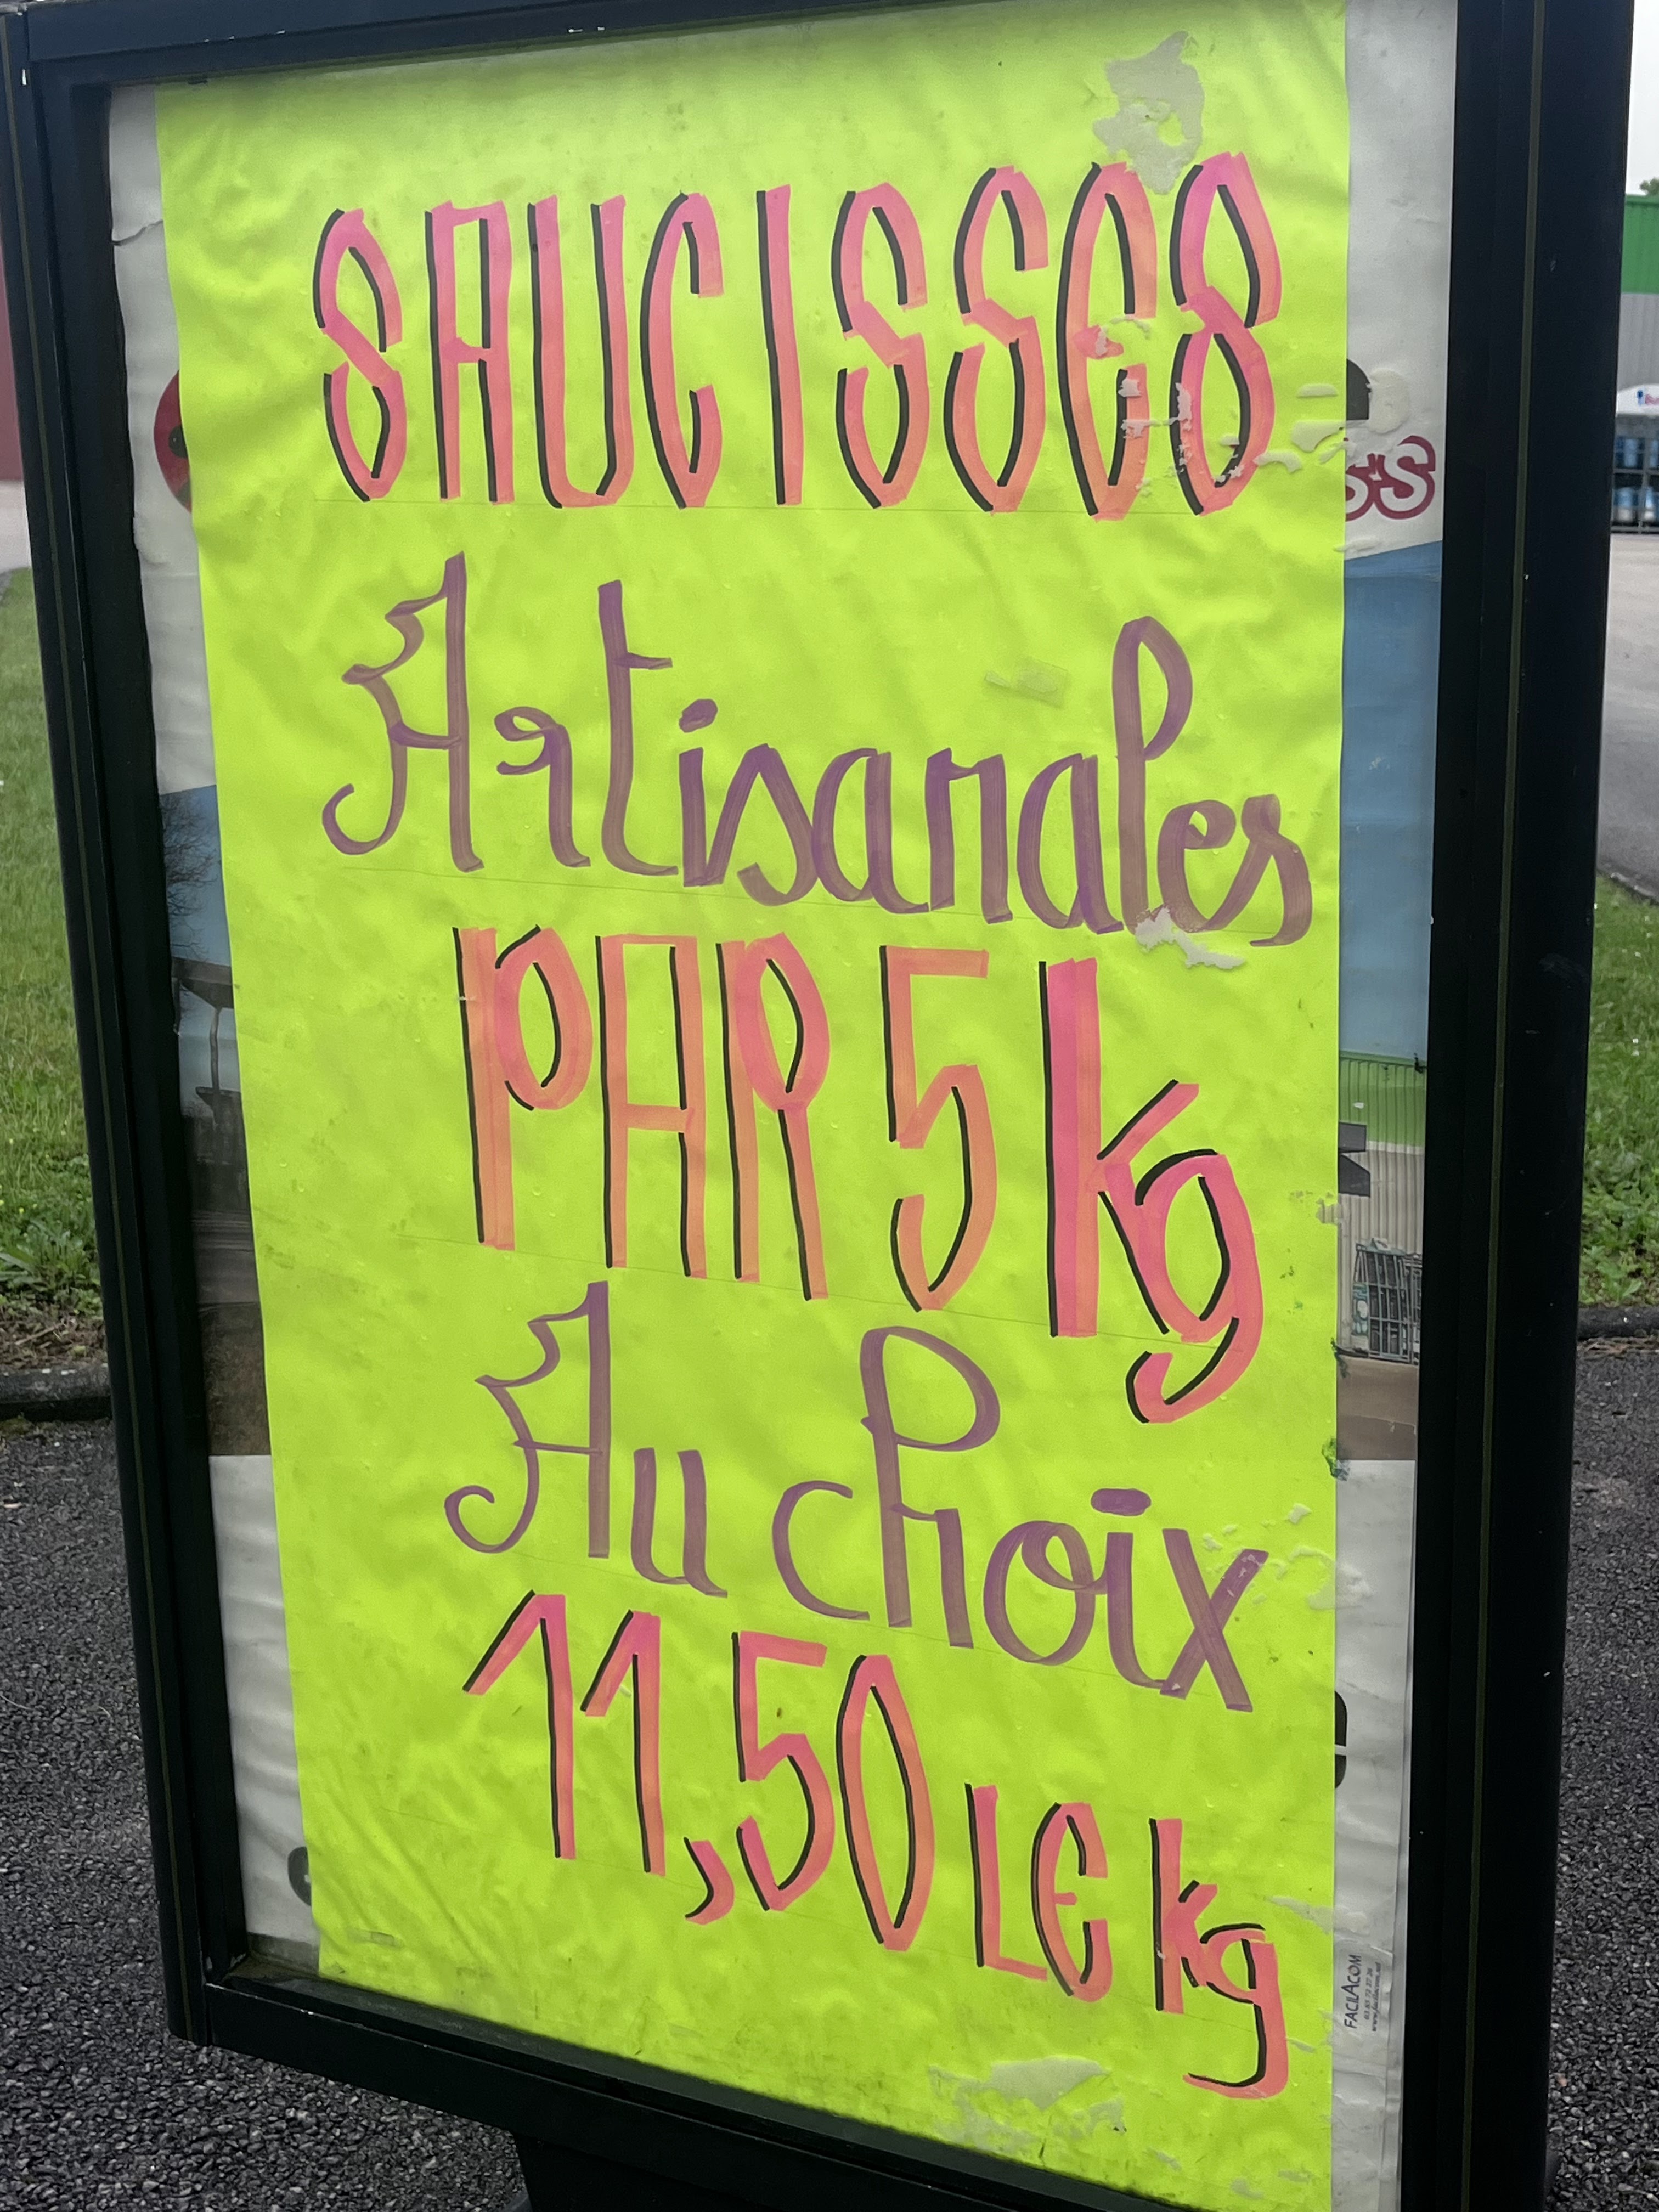 SAUCISSES
Artisanales
PAR 5 Kg
Au choix
11,50 LE Kg
FACILACOM